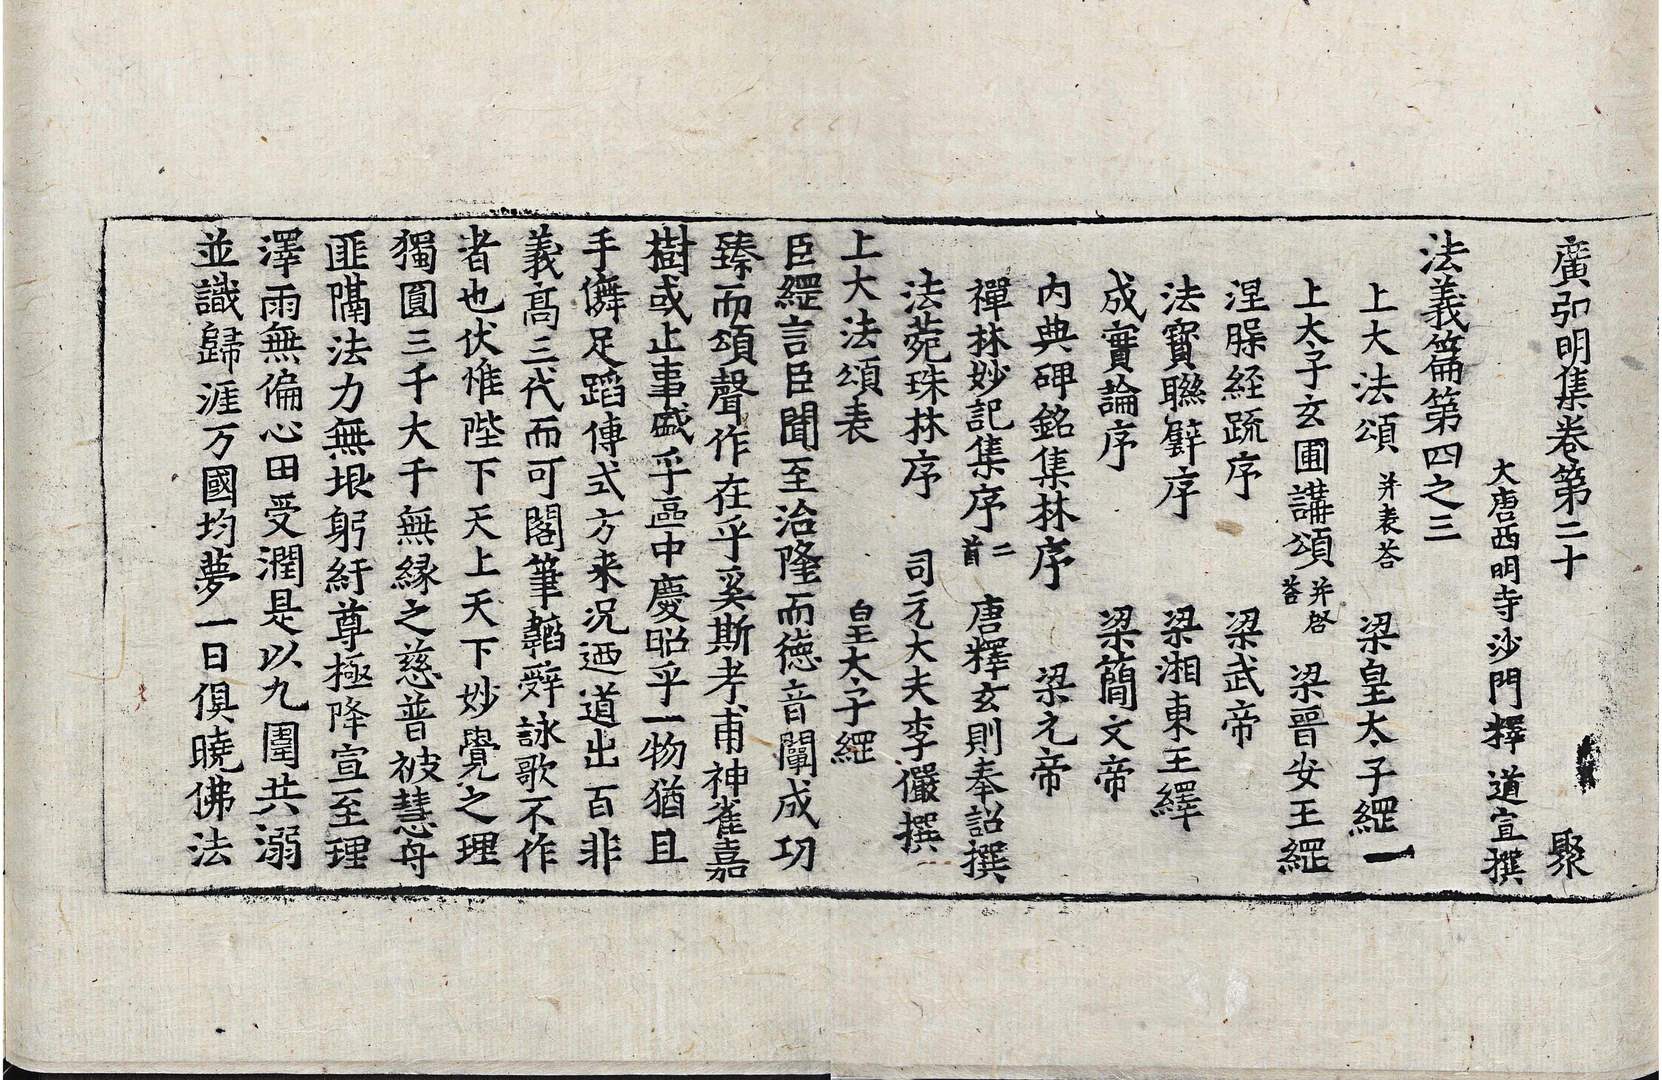 廣弘明集卷第二十 聚
大唐西明寺沙門釋 道宣撰
法義篇第四之三
上大法頌 并表荅 梁皇太子綱一
上太子玄圃講頌 并啓荅 梁晉安王綱
涅槃経䟽序 梁武帝
法寶聯璧序 梁湘東王繹
成實論序 梁蕳文帝
内典碑銘集林序 梁元帝
禪林妙記集序 二首 唐釋玄則奉詔撰
法菀珠林序 司元大夫李儼撰
上大法頌表 皇太子綱
臣綱言臣聞至治隆而徳音闡成功
臻而頌聲作在乎奚斯考甫神雀嘉
樹或止事盛乎區中慶昭乎一物猶且
手儛足蹈傳式方来况迺道出百非
義高三代而可閣筆韜辝詠歌不作
者也伏惟陛下天上天下妙覺之理
獨圓三千大千無緣之慈普被慧舟
匪隔法力無垠躬紆尊極降宣至理
澤雨無偏心田受潤是以九圍共溺
並識歸涯万國均夢一日俱曉佛法